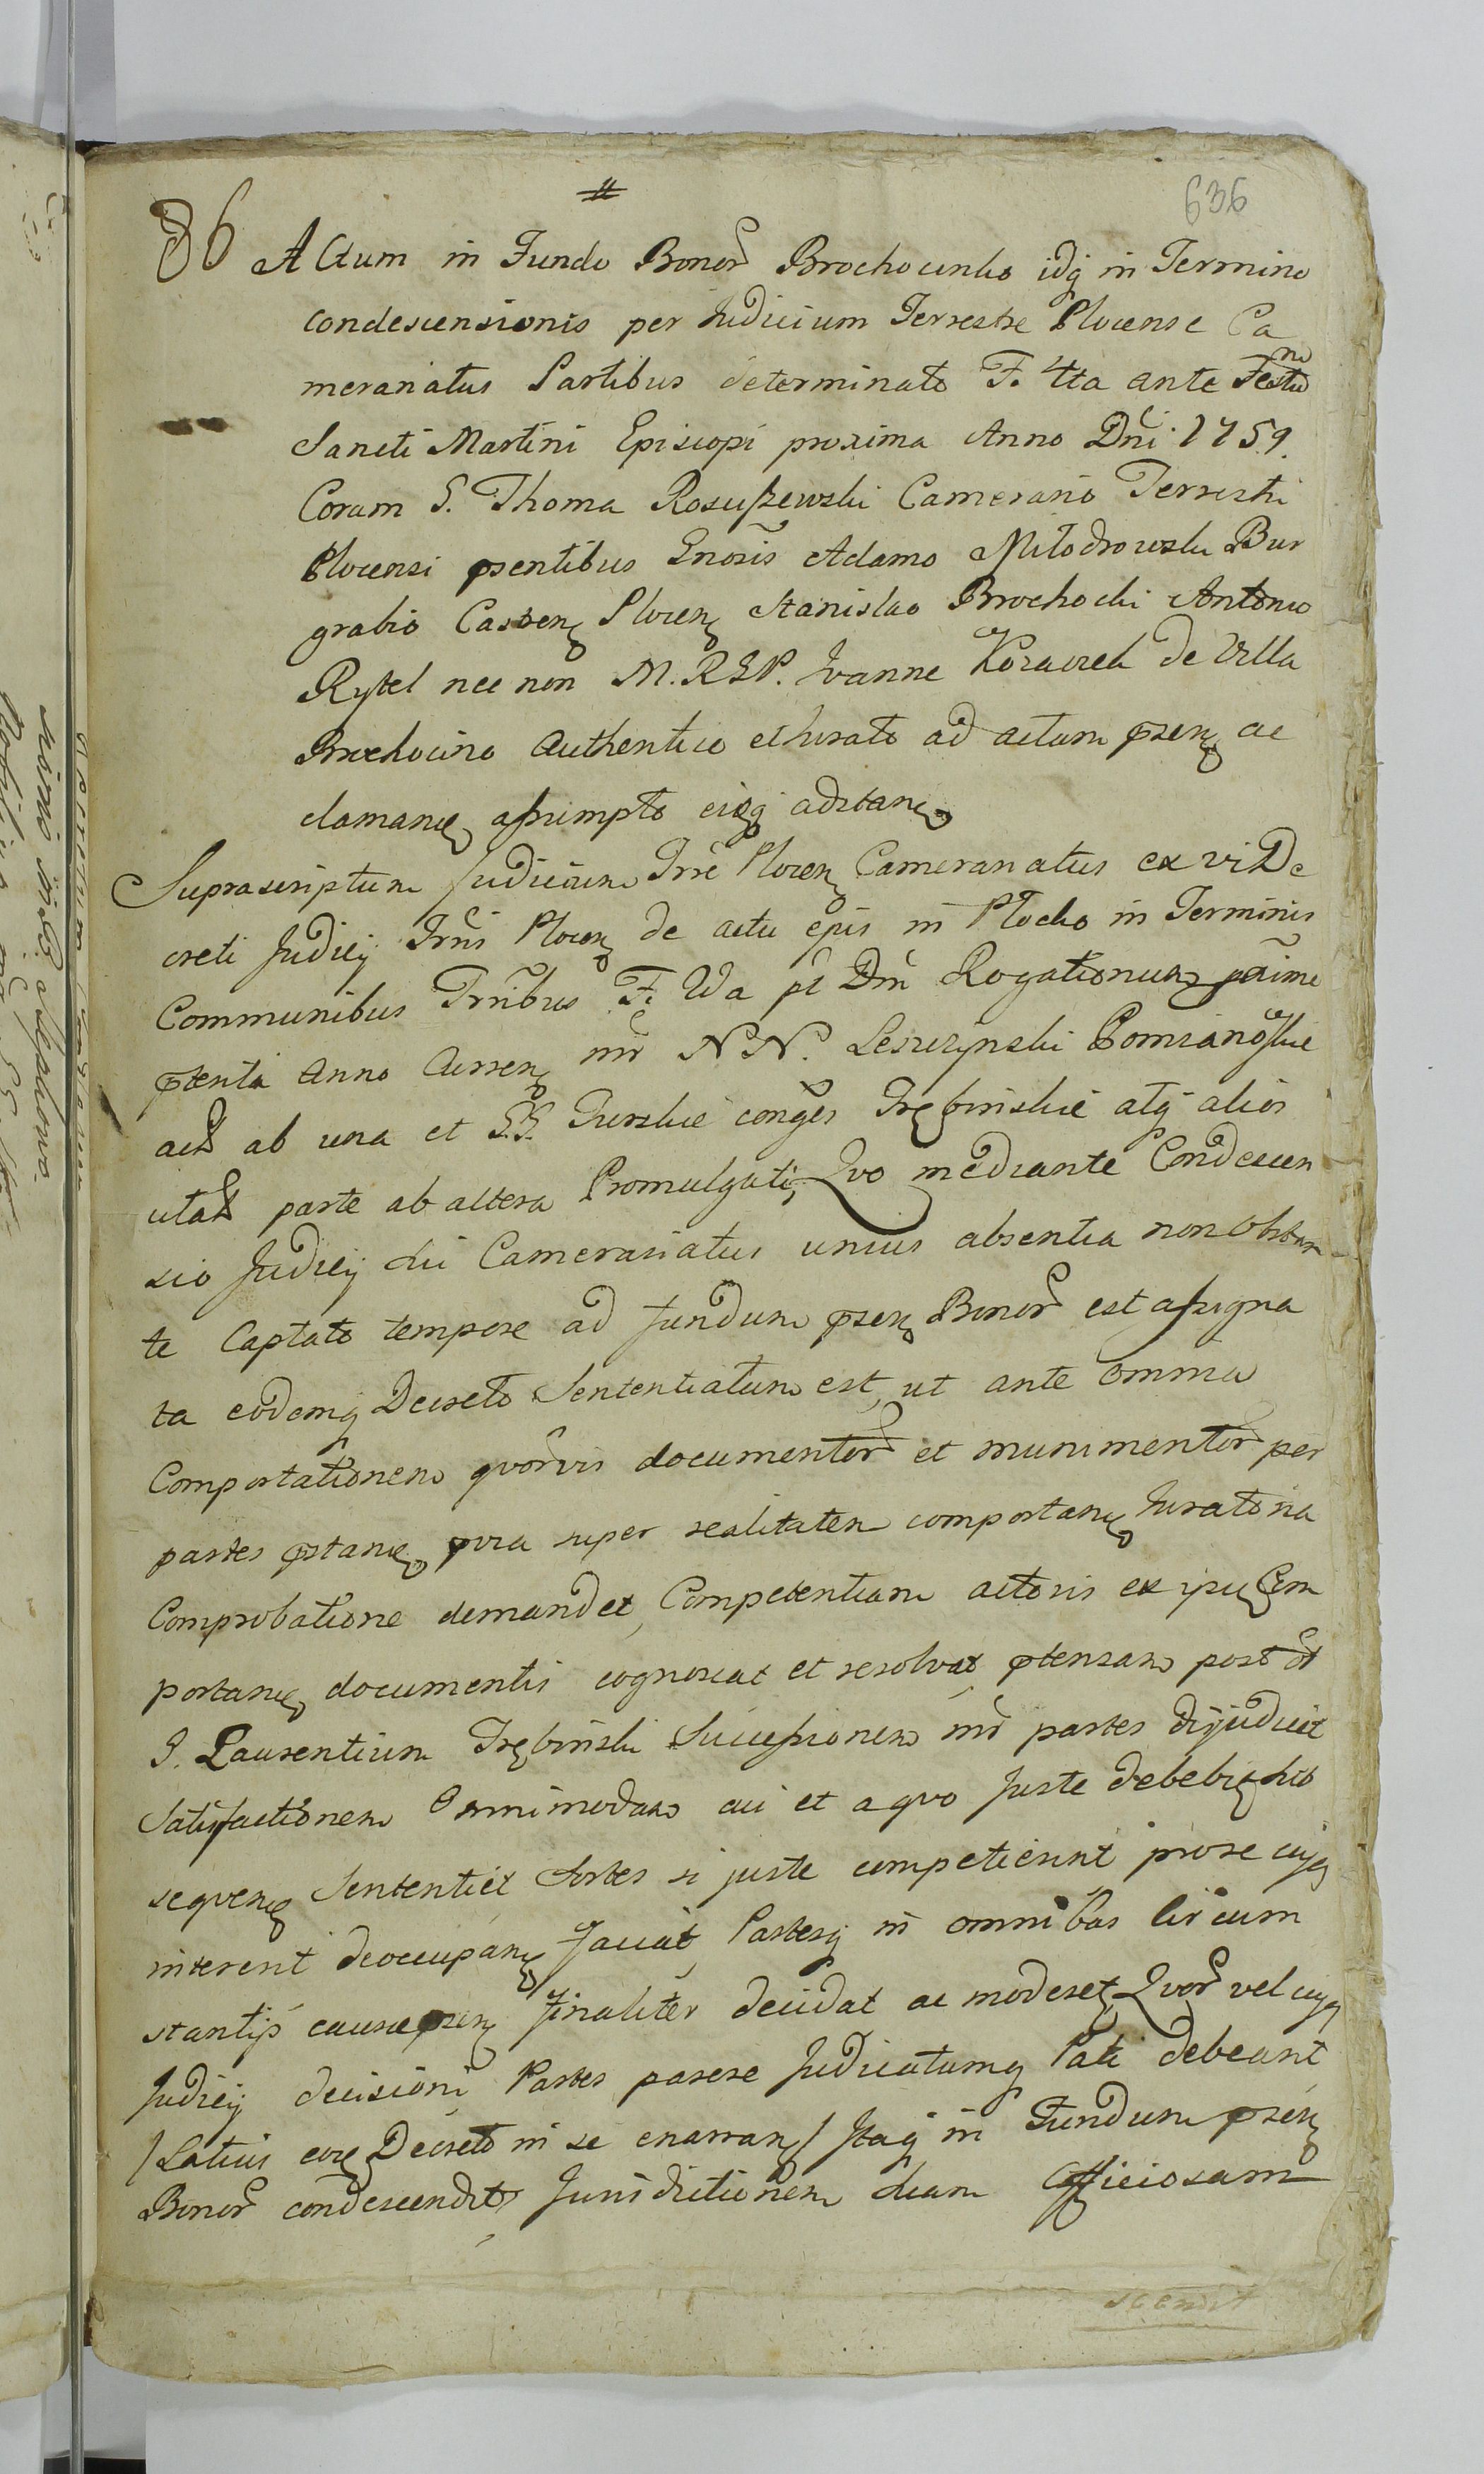 636
86 Actum in Fundo Bonor Brochocinko idq in Termino
condescensionis per Judicium Terrestre Plocense Ca
meranatus Partibus determinato F. 4ta ante Festu
Sancti Martini Episcopi proxima Anno Dni 1759.
Coram G. Thoma Rosuszewski Camerario Terrestri
Plocensi psentibus Gnosis Adamo Miłodrowski Bur
grabio Castren Plocen Stanislao Brochocki Antonio
Rytel nec non M. R. Joanne de Villa
Brochocino Authentico et Jurato ad actum psen ac
clamand assumpto eidq adstan
Suprascriptum Judicium Trre Plocen Cameranatus ex vi De
creti Judicij Trris Plocen de actu ejus in Plocko in Terminis
Communibus Trribus F. 2da pt Dni Rogationum pxime
ptenta Anno Curren intr NN. Leszczynski Pomianoskie
act ab una et GG. Turskie conges Trębinskie atq alios
citat parte ab altera Promulgati, Qvo mediante Condescen
sio Judicij dti Camerariatus unius absentia non obstan
te Captato tempore ad fundum psen Bonor est assigna
ta eodemq Decreto Sententiatum est, ut ante omnia
Comportationem qvorvis documentor et munimentor per
partes pstand, qvia super realitatem comportand Juratoria
Comprobatione demandet, Competentiam actoris ex ipsis Com
portand documentis cognoscat et resolvat ptensam post ol
G. Laurentium Trębinski Successionem intr partes dijudicet
Satisfactionem Omnimodam cui et a qvo juste debebit
seqven Sententiet Sortes si juste competierint pro se cujq
interent deoccupand Faciat, Partesq in omnibus circum
stantijs causæ psen finaliter decidat ac moderet, Qvor vel cujq
Judicij decisioni Partes parere Judicatumq Pati debeant
/Latius eoq Decreto in se enarran/ Itaq in Fundum psen
Bonor condescendit Jurisdictionem dtam officiosam